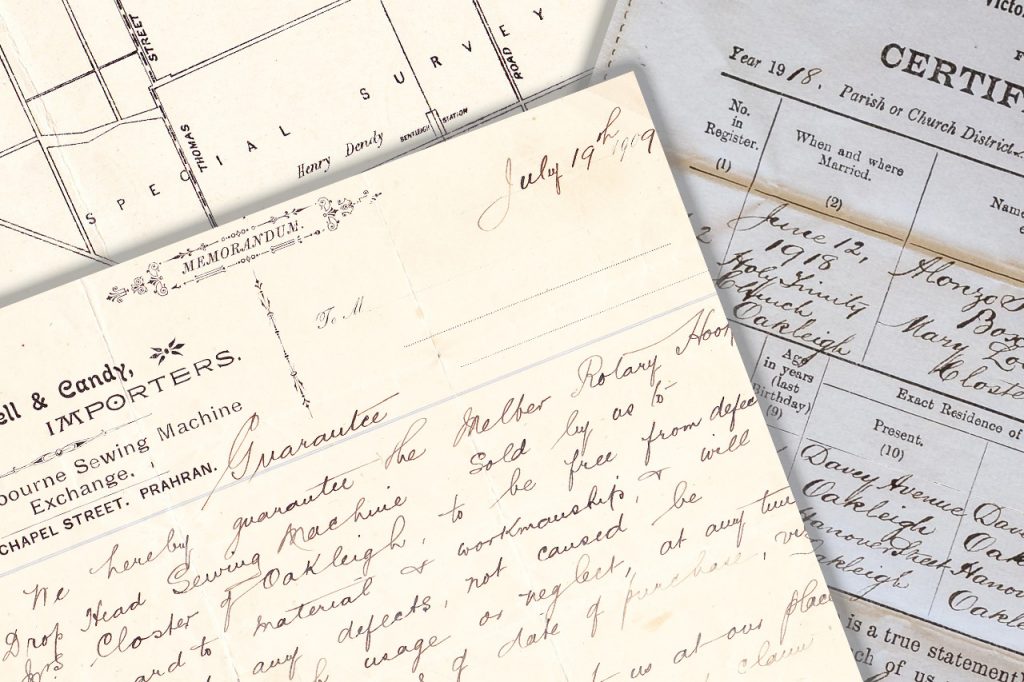 STREET
THOMAS
SPECIAL SURVEY
Henry Dendy
BENTLEIGH STATION
ROAD
July 19th 1909
MEMORANDUM.
To M
ell & Candy,
IMPORTERS.
bourne Sewing Machine
Exchange,
CHAPEL STREET. PRAHRAN.
Guarantee
We hereby guarantee the Melber Rotary Hook
Drop Head Sewing Machine sold by us to
Mrs Closter of Oakleigh, to be free from defec
ard to material & workmanship, & will
any defects, not caused be
usage or neglect, at any time
of date of purchase,
t us at our place
claim
Victo
CERTIF
Year 1918. Parish or Church District
No.
in
Register.
(1)
When and where
Married.
(2)
Nam
2
June 12,
1918
Holy Trinity
Church
Oakleigh
Alonzo S
Box
Mary Lo
Closte
Age
in years
(last
Birthday)
(9)
Exact Residence of
Present.
(10)
Davey Avenue
Oakleigh
Hanover Street
Oakleigh
Dav
Oak
Hanov
Oakle
is a true statement
ch of us